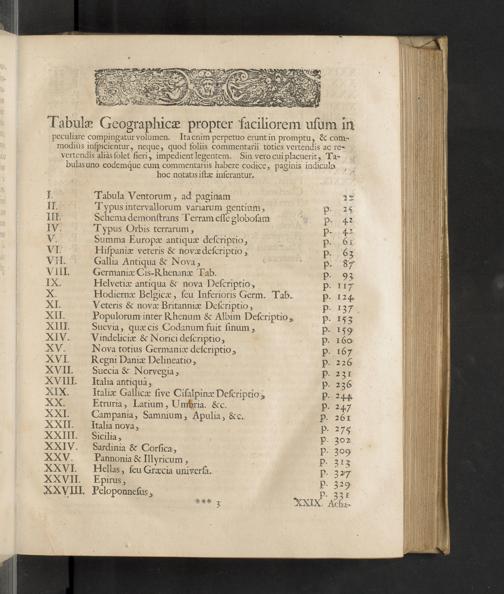 Tabulæ Geographicæ propter faciliorem usum in
peculiare compingatur volumen. Ita enim perpetuo erunt in promptu, & com-
modius inspicientur, neque, quod foliis commentarii toties vertendis ac re-
vertendis alias solet fieri, impedient legentem. Sin vero cui placuerit, Ta-
bulas uno eodemque cum commentariis habere codice, paginis indiculo
hoc notatis istæ inserantur.
I. Tabula Ventorum, ad paginam 22
II. Typus intervallorum variarum gentium, p. 25
III. Schema demonstrans Terram esse globosam p. 42
IV. Typus Orbis terrarum, p. 42
V. Summa Europæ antiquæ descriptio, p. 61
VI. Hispaniæ veteris & novæ descriptio, p. 63
VII. Gallia Antiqua & Nova, p. 87
VIII. Germaniæ Cis-Rhenanæ Tab. p. 93
IX. Helvetiæ antiqua & nova Descriptio, p. 117
X. Hodiernæ Belgicæ, seu Inferioris Germ. Tab. p. 124
XI. Veteris & novæ Britanniæ Descriptio, p. 137
XII. Populorum inter Rhenum & Albim Descriptio, p. 153
XIII. Suevia, quæ cis Codanum fuit sinum, p. 159
XIV. Vindeliciæ & Norici descriptio, p. 160
XV. Nova totius Germaniæ descriptio, p. 167
XVI. Regni Daniæ Delineatio, p. 226
XVII. Suecia & Norvegia, p. 231
XVIII. Italia antiqua, p. 236
XIX. Italiæ Gallicæ sive Cisalpinæ Descriptio, p. 244
XX. Etruria, Latium, Umbria. &c. p. 247
XXI. Campania, Samnium, Apulia, &c. p. 261
XXII. Italia nova, p. 275
XXIII. Sicilia, p. 302
XXIV. Sardinia & Corsica, p. 309
XXV. Pannonia & Illyricum, p. 313
XXVI. Hellas, seu Græcia universa. p. 327
XXVII. Epirus, p. 329
XXVIII. Peloponnesus, p. 331
*** 3 XXIX. Acha-